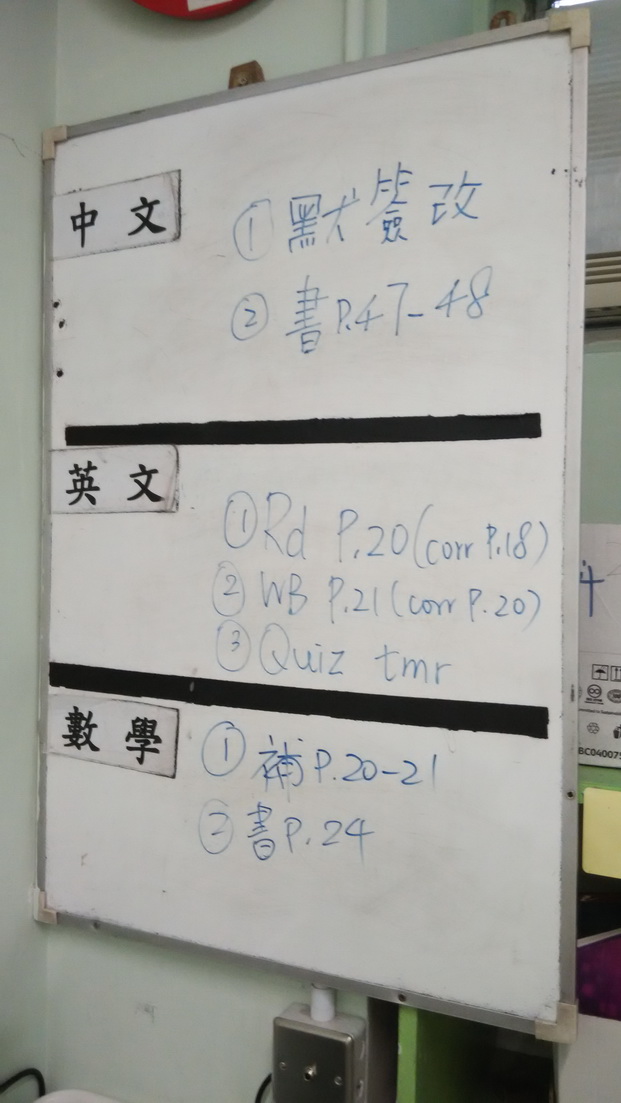 中文
① 默簽改
② 書 P.47-48
英文
① Rd P.20 (corr P.18)
② WB P.21 (corr P.20)
③ Quiz tmr
數學
① 補 P.20-21
② 書 P.24
BC04007